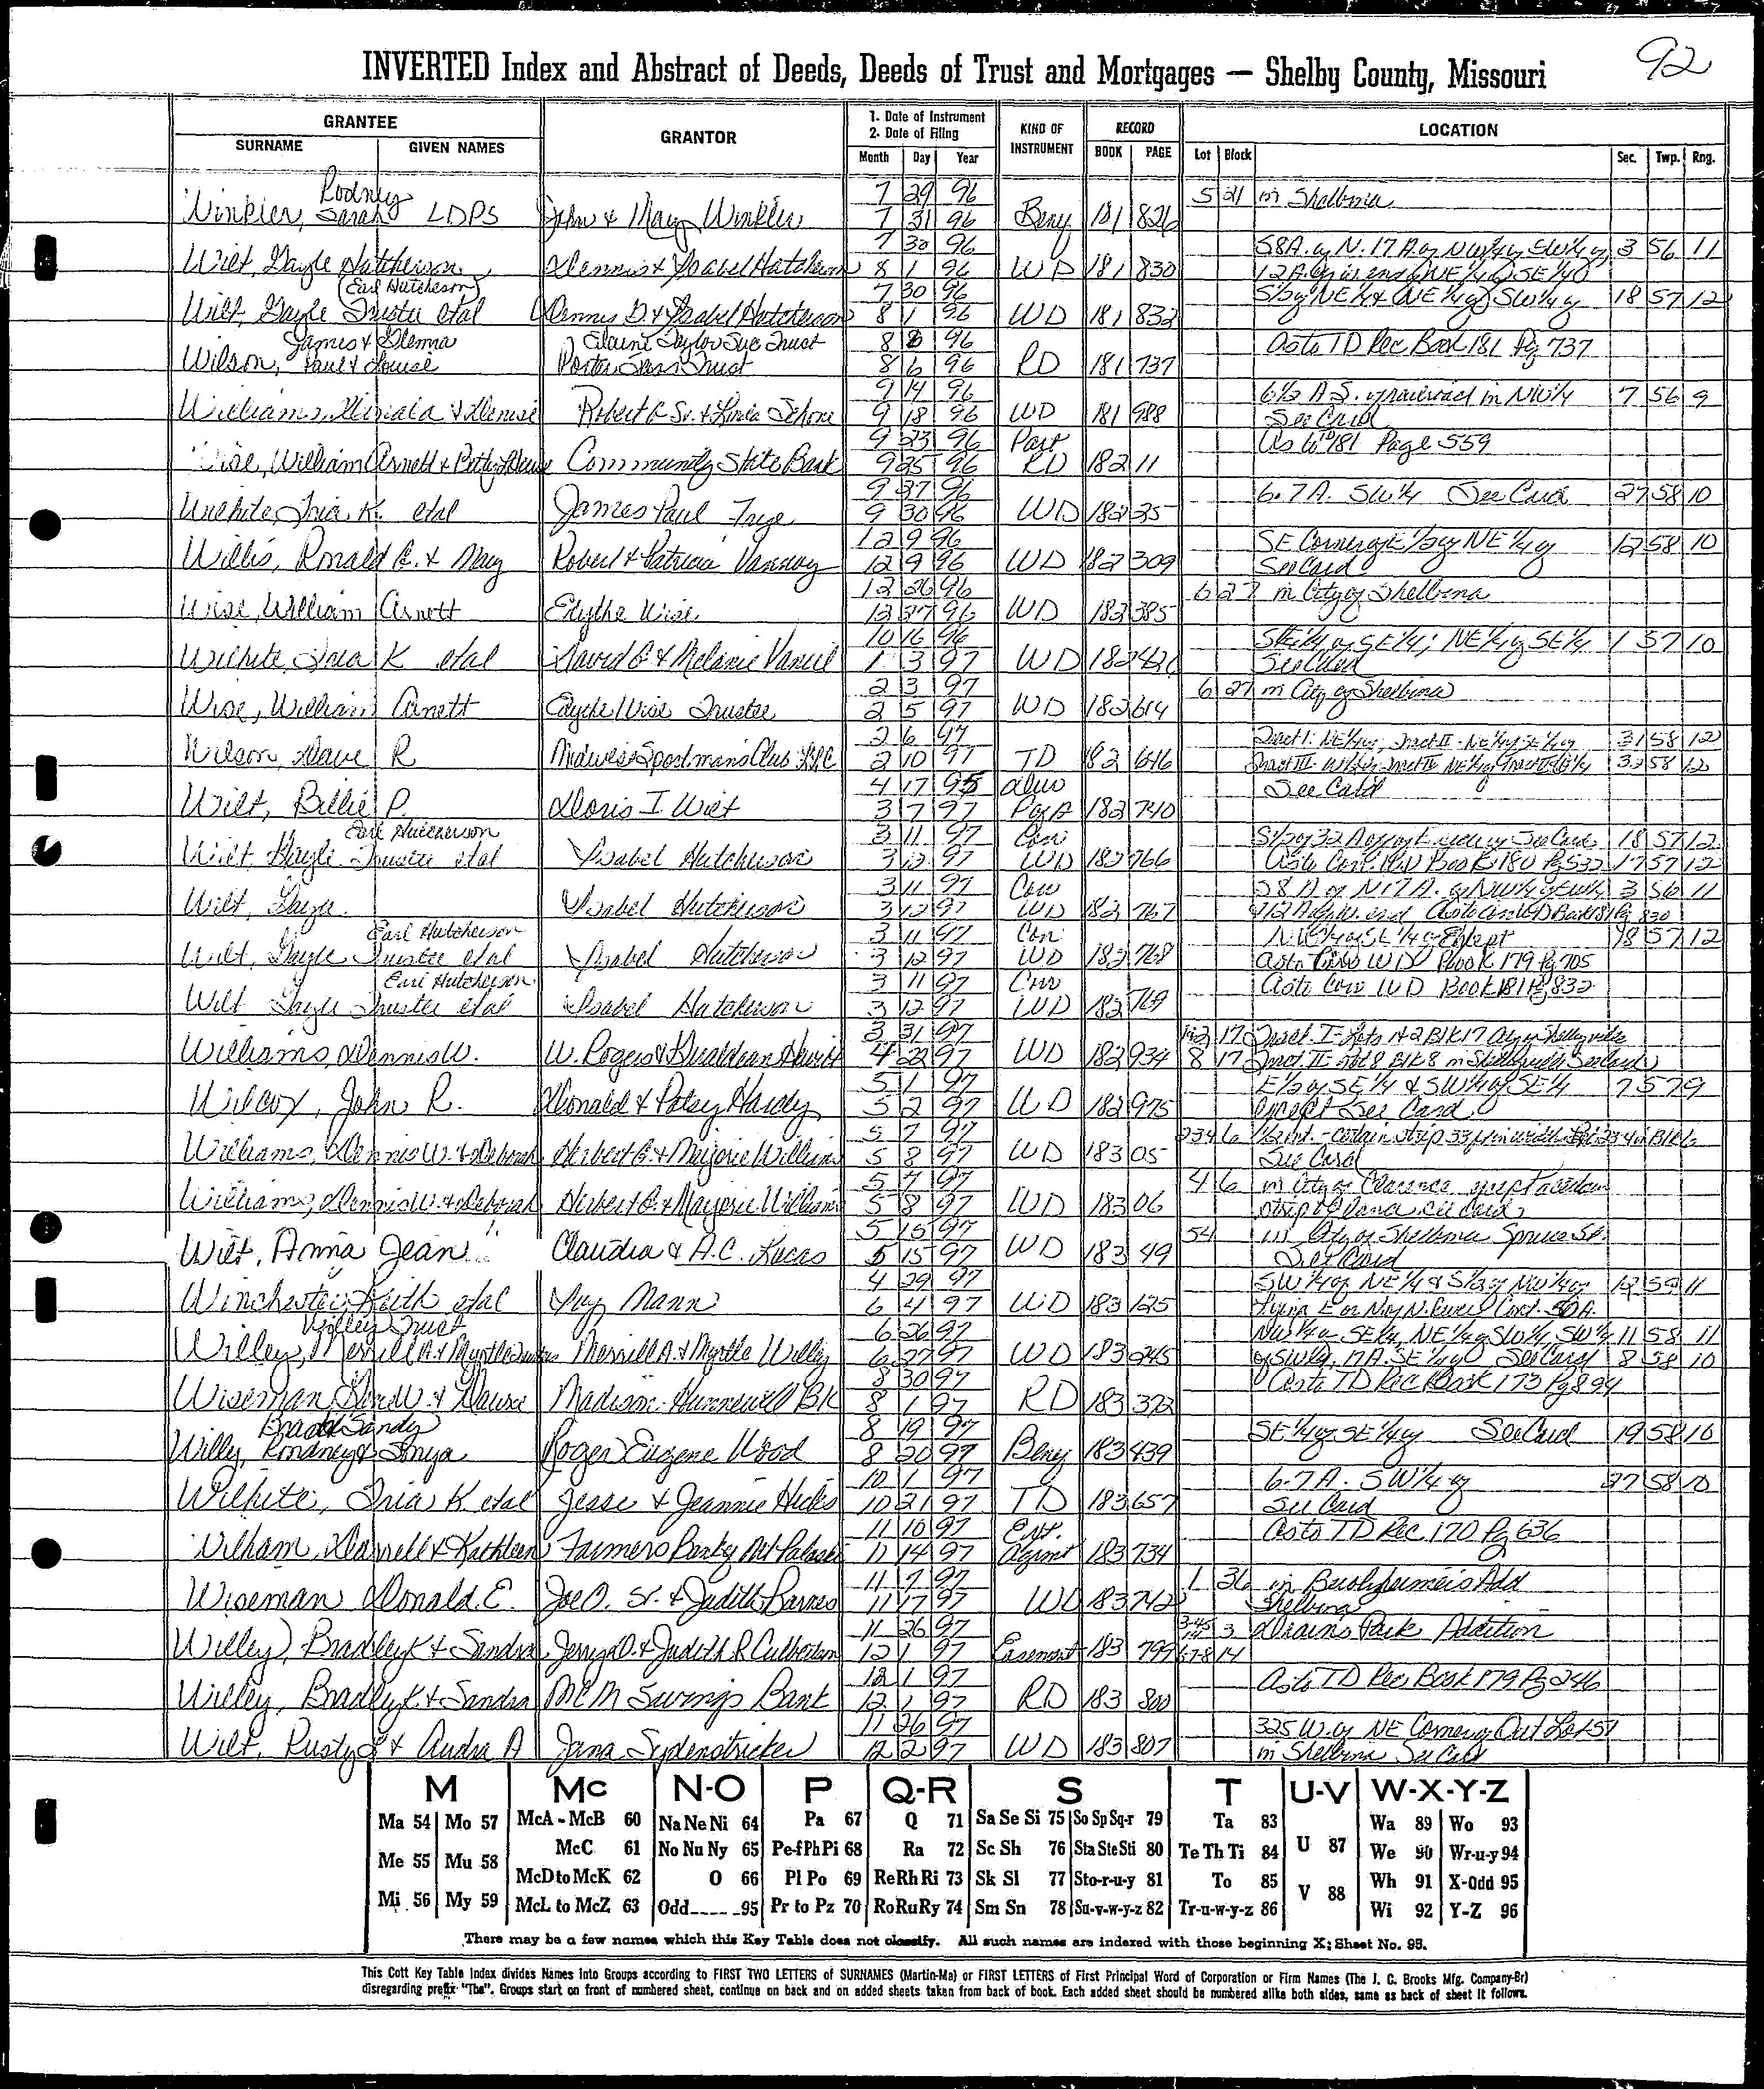 92
INVERTED Index and Abstract of Deeds, Deeds of Trust and Mortgages — Shelby County, Missouri
GRANTEE
SURNAME GIVEN NAMES
GRANTOR
1. Date of Instrument
2. Date of Filing
Month Day Year
KIND OF INSTRUMENT
RECORD
BOOK PAGE
LOCATION
Lot Block Sec. Twp. Rng.
Rodney 7 29 96 5 21 in Shelbina
Winkler, Sarah LDPS John & Mary Winkler 7 31 96 Beny 181 826
7 30 96 3 56 11
Wilt, Gayle Hutcherson Dennis & Ysabel Hutcherson 8 1 96 WD 181 830
(Earl Hutcherson) 7 30 96 S½ of NE¼ & NE¼ of SW¼ of 18 57 12
Wilt, Gayle Trustee etal Dennis D. & Ysabel Hutcherson 8 1 96 WD 181 832
James & Glenna Elaine Taylor Suc Trust 8 6 96 As to TD Rec Book 181 Pg 737
Wilson, Paul & Louise 8 6 96 RD 181 737
9 14 96 6½ A S. of railroad in NW¼ 7 56 9
Williams, & Denise Robert C Sr. & Linda Schone 9 18 96 WD 181 988 See Card
9 23 96 Part As to 181 Page 559
Wise, William Arnett & Community State Bank 9 25 96 RD 182 11
9 27 96 6.7 A. SW¼ See Card 27 58 10
Wilhite, Iria K. etal James Paul Frye 9 30 96 WD 182 35
12 9 96 SE Corner of E½ of NE¼ of 12 58 10
Willis, Ronald C. & Mary Robert & Patricia Vannoy 12 9 96 WD 182 309 See Card
12 26 96 6 27 in City of Shelbina
Wise, William Arnett Edythe Wise 12 27 96 WD 182 385
10 16 96 SE¼ of SE¼; NE¼ of SE¼ 1 57 10
Wilhite, Iria K etal David & Melanie 1 3 97 WD 182 See Card
2 3 97 6 27 in City of Shelbina
Wise, William Arnett Wise Trustee 2 5 97 WD 182 614
2 6 97 31 58 12
Wilson, Dave R Midwest Sportmans Club LLC 2 10 97 TD 182 646 32 58 12
4 17 95 See Card
Wilt, Billie P. Doris I Wilt 3 7 97 182 740
Earl Hutcherson 3 11 97 Corr See Card 18 57 12
Wilt Gayle Trustee etal Ysabel Hutcherson 3 12 97 WD 182 766 As to Corr. WD Book 180 Pg 532 17 57 12
3 11 97 Corr 3 56 11
Wilt, Gayle Ysabel Hutcherson 3 12 97 WD 182 767
Earl Hutcherson 3 11 97 Corr NW¼ of SE¼ of Except 18 57 12
Wilt, Gayle Trustee etal Ysabel Hutcherson 3 12 97 WD 182 768 As to Corr WD Book 179 Pg 705
Earl Hutcherson 3 11 97 Corr As to Corr WD Book 181 Pg 832
Wilt Gayle Trustee etal Ysabel Hutcherson 3 12 97 WD 182 769
3 31 97 1&2 17 Tract I - Lots 1&2 Blk 17 City of Shelbyville
Williams, Dennis W. 4 22 97 WD 182 934 8 17 Tract II Lot 8 Blk 8 in Shelbyville See Card
5 1 97 E½ of SE¼ & SW¼ of SE¼ 7 57 9
Wilcox, John R. Donald & Patsy Hardy 5 2 97 WD 182 975 except See Card
5 7 97 234 6
Williams, Dennis W. & Deborah Herbert C. & Marjorie Williams 5 8 97 WD 183 05 See Card
5 7 97 4 6 in City of Clarence except a certain
Williams, Dennis W. & Deborah Herbert C. & Marjorie Williams 5 8 97 WD 183 06 strip of land See Card
5 15 97 54 in City of Shelbina Spruce St.
Wilt, Anna Jean Claudia & A.C. Lucas 5 15 97 WD 183 49 See Card
4 29 97 SW¼ of NE¼ & S½ of NW¼ of 12 59 11
Winchester, Keith etal Mann 6 4 97 WD 183 125
Willey Trust 6 26 97 NW¼ of SE¼, NE¼ of SW¼, SW¼ 11 58 11
Willey, Merrill A. & Myrtle Merrill A. & Myrtle Willey 6 27 97 WD 183 245 of SW¼, 17 A. SE¼ of See Card 8 58 10
8 30 97 As to TD Rec Book 173 Pg 894
Wiseman, Madison-Hunnewell Bk 8 1 97 RD 183 372
Brad & Sandy 8 19 97 SE¼ of SE¼ of See Card 19 58 10
Willy, Rondney & Tonya Roger Eugene Wood 8 20 97 Beny 183 439
10 1 97 6.7 A. SW¼ of 27 58 10
Wilhite, Iria K etal Jesse & Jeannie Hicks 10 21 97 TD 183 657 See Card
11 10 97 Ext. As to TD Rec. 170 Pg 636
Wilham, Darrell & Kathleen Farmers Bank of Mt Pulaski 11 14 97 Agrmt 183 734
11 7 97 1 36 in Add
Wiseman Donald E. Joe O. Sr. & Judith Barnes 11 17 97 WD 183 742 Shelbina
11 26 97 3 Drains Park Addition
Willey, Bradley K & Sandra Jerry D. & Judith R Culbertson 12 1 97 Easement 183 799 678 14
12 1 97 As to TD Rec Book 179 Pg 246
Willey, Bradley K & Sandra M & M Savings Bank 12 1 97 RD 183 800
11 26 97 325 W. of NE Corner of Out Lot 57
Wilt, Rusty & Audra A Jana Sydenstricker 12 2 97 WD 183 807 in Shelbina See Card
M Mc N-O P Q-R S T U-V W-X-Y-Z
Ma 54 Mo 57 McA - McB 60 Na Ne Ni 64 Pa 67 Q 71 Sa Se Si 75 So Sp Sq-r 79 Ta 83 Wa 89 Wo 93
McC 61 No Nu Ny 65 Pe-f Ph Pi 68 Ra 72 Sc Sh 76 Sta Ste Sti 80 Te Th Ti 84 U 87 We 90 Wr-u-y 94
Me 55 Mu 58 McD to McK 62 O 66 Pl Po 69 Re Rh Ri 73 Sk Sl 77 Sto-r-u-y 81 To 85 V 88 Wh 91 X-Odd 95
Mi 56 My 59 McL to McZ 63 Odd---- -95 Pr to Pz 70 Ro Ru Ry 74 Sm Sn 78 Su-v-w-y-z 82 Tr-u-w-y-z 86 Wi 92 Y-Z 96
There may be a few names which this Key Table does not classify. All such names are indexed with those beginning X; Sheet No. 95.
This Cott Key Table Index divides Names into Groups according to FIRST TWO LETTERS of SURNAMES (Martin-Ma) or FIRST LETTERS of First Principal Word of Corporation or Firm Names (The J. C. Brooks Mfg. Company-Br)
disregarding prefix "The". Groups start on front of numbered sheet, continue on back and on added sheets taken from back of book. Each added sheet should be numbered alike both sides, same as back of sheet it follows.